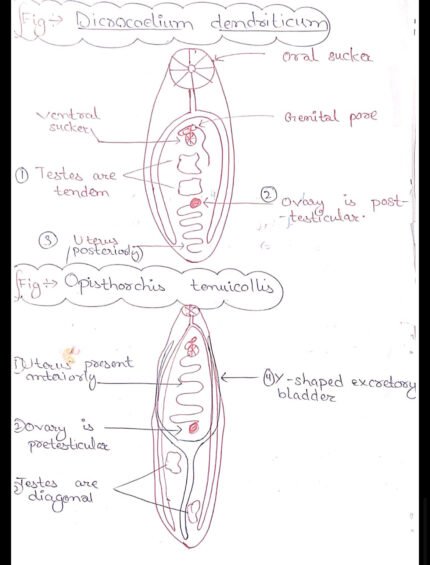 Fig→ Dicrocoelium dendriticum
oral sucker
ventral
sucker
Genital pore
① Testes are
tendem
② Ovary is post-
-testicular.
③ Uterus
posteriorly
Fig→ Opisthorchis tenuicollis
1) Uterus present
antaiorly
④ Y-shaped excretory
bladder
2) Ovary is
pretesticular
3) Testes are
diagonal